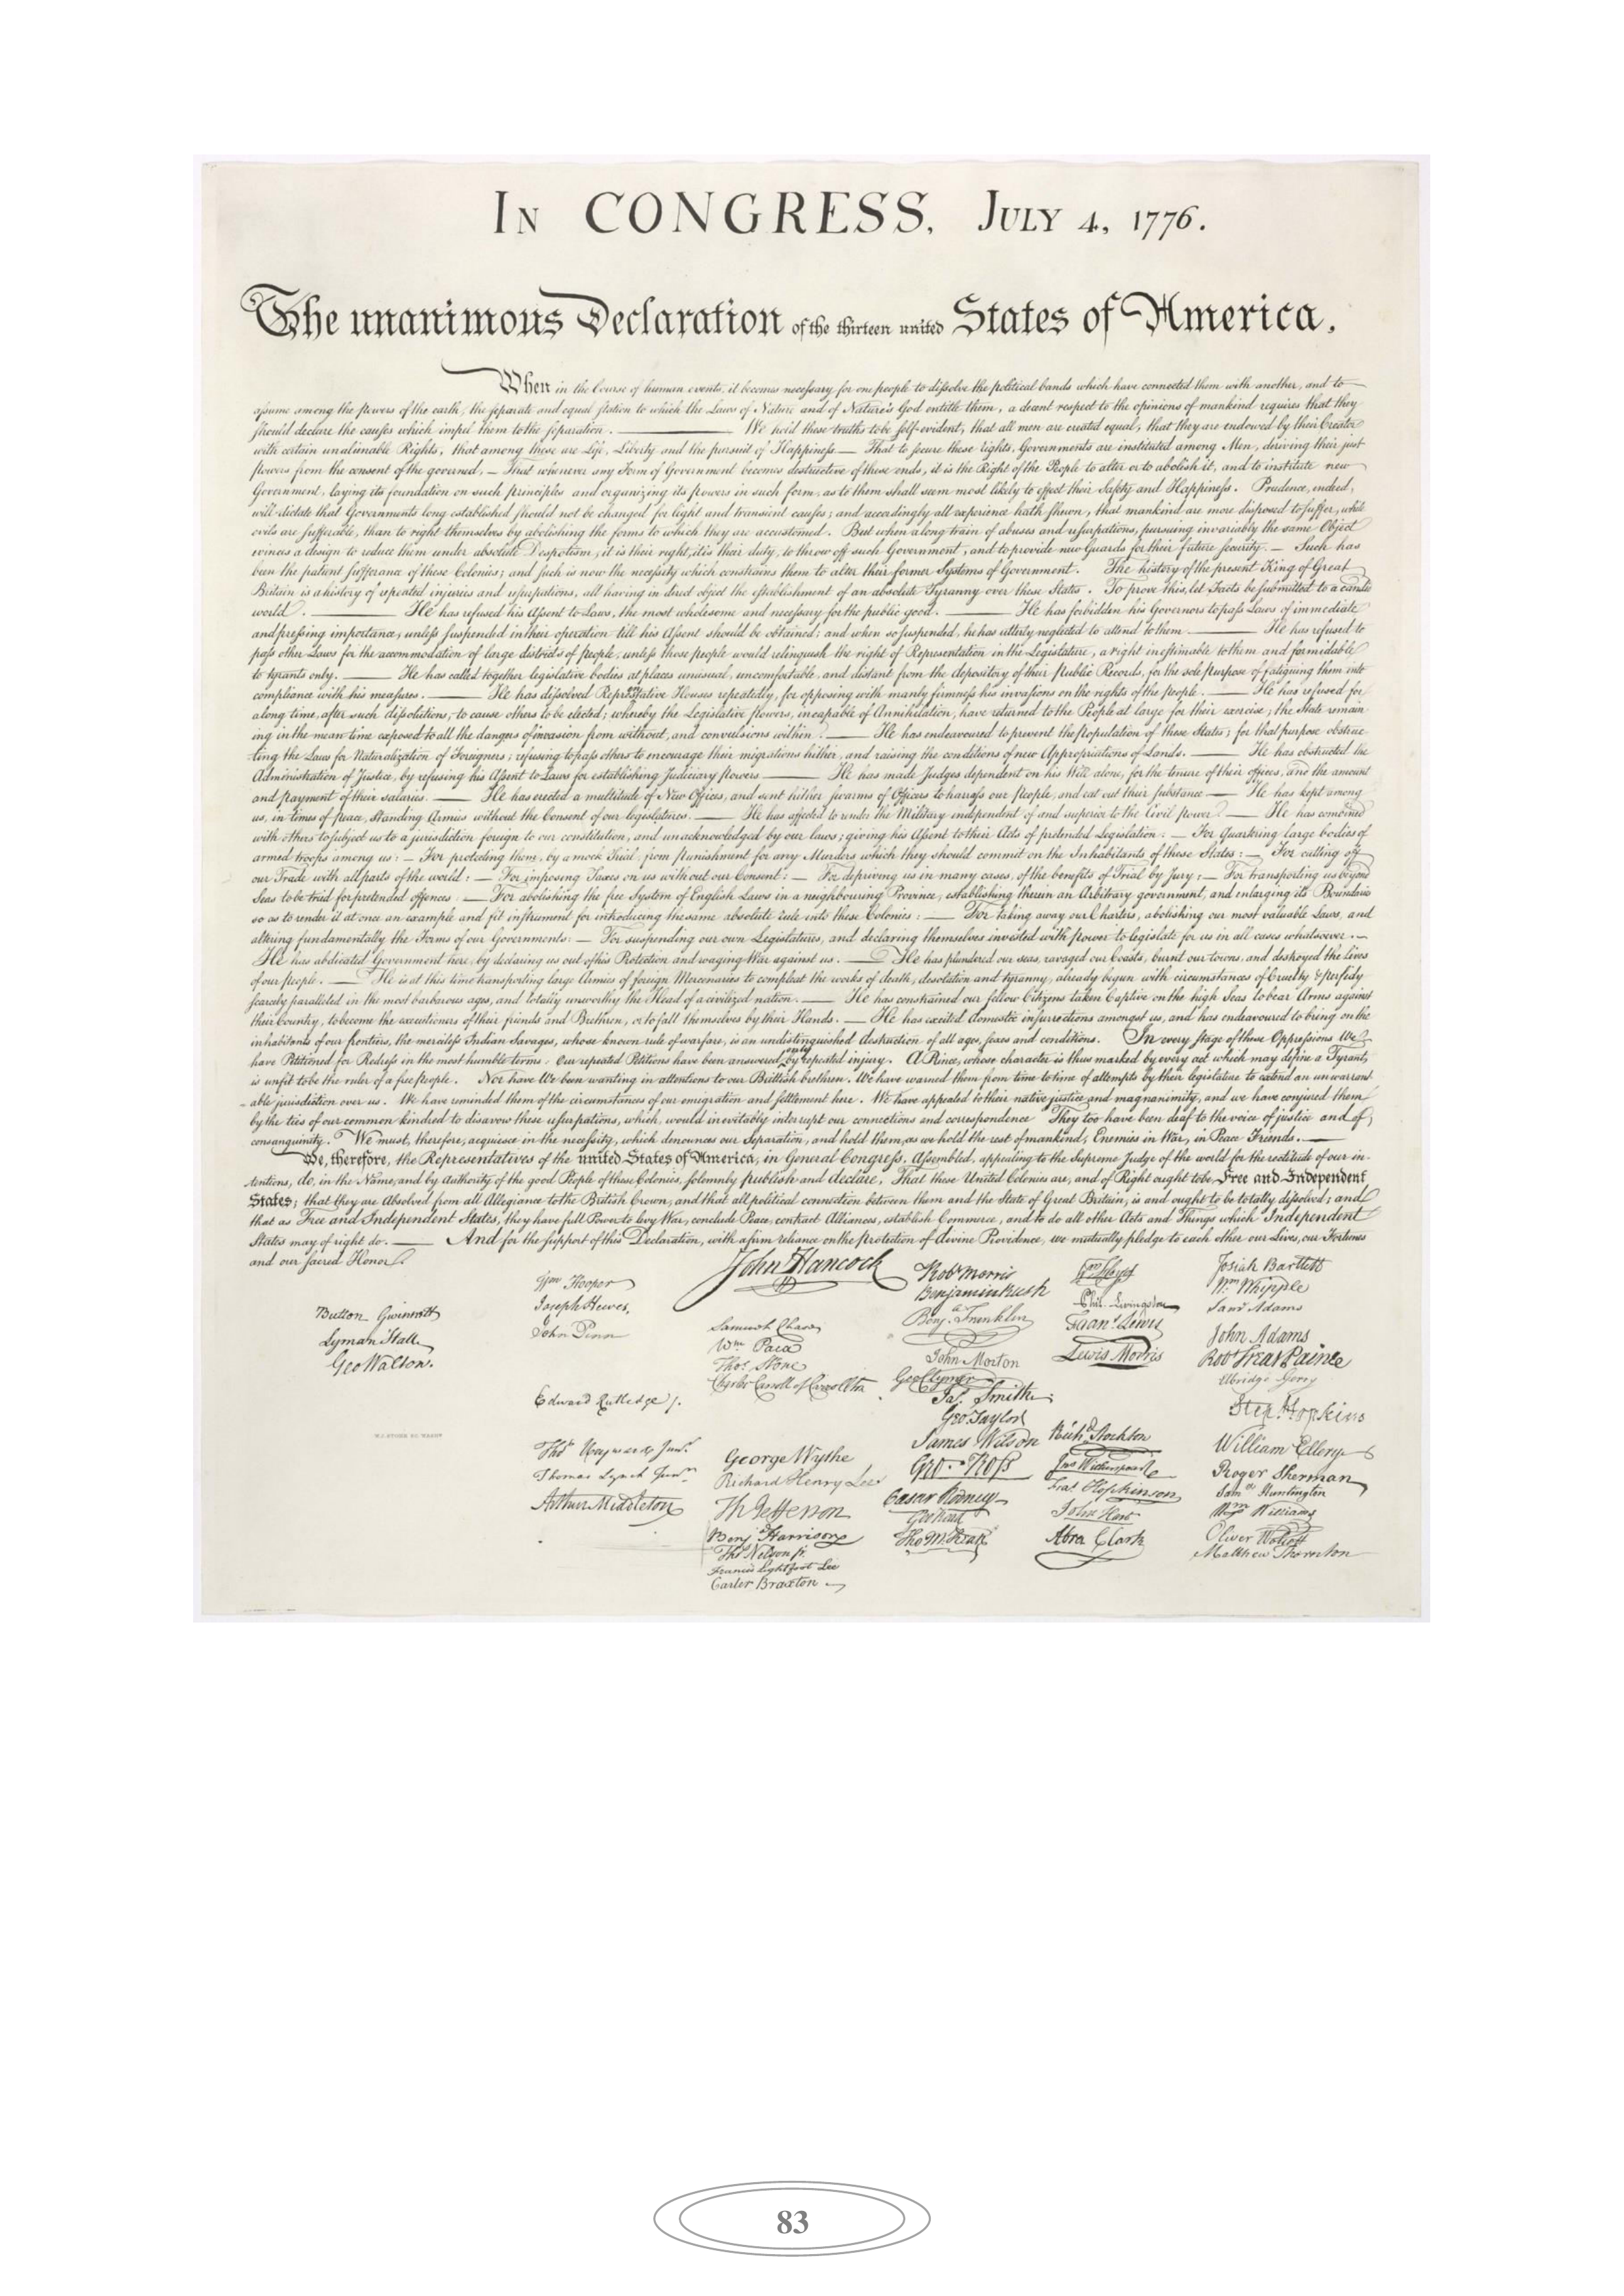 IN CONGRESS, JULY 4, 1776.
The unanimous Declaration of the thirteen united States of America,
When in the Course of human events, it becomes necessary for one people to dissolve the political bands which have connected them with another, and to
assume among the powers of the earth, the separate and equal station to which the Laws of Nature and of Nature's God entitle them, a decent respect to the opinions of mankind requires that they
should declare the causes which impel them to the separation. — We hold these truths to be self-evident, that all men are created equal, that they are endowed by their Creator
with certain unalienable Rights, that among these are Life, Liberty and the pursuit of Happiness. — That to secure these rights, Governments are instituted among Men, deriving their just
powers from the consent of the governed, — That whenever any Form of Government becomes destructive of these ends, it is the Right of the People to alter or to abolish it, and to institute new
Government, laying its foundation on such principles and organizing its powers in such form, as to them shall seem most likely to effect their Safety and Happiness. Prudence, indeed,
will dictate that Governments long established should not be changed for light and transient causes; and accordingly all experience hath shewn, that mankind are more disposed to suffer, while
evils are sufferable, than to right themselves by abolishing the forms to which they are accustomed. But when a long train of abuses and usurpations, pursuing invariably the same Object
evinces a design to reduce them under absolute Despotism, it is their right, it is their duty, to throw off such Government, and to provide new Guards for their future security. — Such has
been the patient sufferance of these Colonies; and such is now the necessity which constrains them to alter their former Systems of Government. The history of the present King of Great
Britain is a history of repeated injuries and usurpations, all having in direct object the establishment of an absolute Tyranny over these States. To prove this, let Facts be submitted to a candid
world. — He has refused his Assent to Laws, the most wholesome and necessary for the public good. — He has forbidden his Governors to pass Laws of immediate
and pressing importance, unless suspended in their operation till his Assent should be obtained; and when so suspended, he has utterly neglected to attend to them. — He has refused to
pass other Laws for the accommodation of large districts of people, unless those people would relinquish the right of Representation in the Legislature, a right inestimable to them and formidable
to tyrants only. — He has called together legislative bodies at places unusual, uncomfortable, and distant from the depository of their Public Records, for the sole purpose of fatiguing them into
compliance with his measures. — He has dissolved Representative Houses repeatedly, for opposing with manly firmness his invasions on the rights of the people. — He has refused for
a long time, after such dissolutions, to cause others to be elected; whereby the Legislative powers, incapable of Annihilation, have returned to the People at large for their exercise; the State remain-
ing in the mean time exposed to all the dangers of invasion from without, and convulsions within. — He has endeavoured to prevent the population of these States; for that purpose obstruc-
ting the Laws for Naturalization of Foreigners; refusing to pass others to encourage their migrations hither, and raising the conditions of new Appropriations of Lands. — He has obstructed the
Administration of Justice, by refusing his Assent to Laws for establishing Judiciary powers — He has made Judges dependent on his Will alone, for the tenure of their offices, and the amount
and payment of their salaries. — He has erected a multitude of New Offices, and sent hither swarms of Officers to harrass our people, and eat out their substance — He has kept among
us, in times of peace, Standing Armies without the Consent of our legislatures. — He has affected to render the Military independent of and superior to the Civil power. — He has combined
with others to subject us to a jurisdiction foreign to our constitution, and unacknowledged by our laws; giving his Assent to their Acts of pretended Legislation: — For Quartering large bodies of
armed troops among us: — For protecting them, by a mock Trial, from punishment for any Murders which they should commit on the Inhabitants of these States: — For cutting off
our Trade with all parts of the world: — For imposing Taxes on us without our Consent: — For depriving us in many cases, of the benefits of Trial by Jury: — For transporting us beyond
Seas to be tried for pretended offences — For abolishing the free System of English Laws in a neighbouring Province, establishing therein an Arbitrary government, and enlarging its Boundaries
so as to render it at once an example and fit instrument for introducing the same absolute rule into these Colonies: — For taking away our Charters, abolishing our most valuable Laws, and
altering fundamentally the Forms of our Governments: — For suspending our own Legislatures, and declaring themselves invested with power to legislate for us in all cases whatsoever. —
He has abdicated Government here, by declaring us out of his Protection and waging War against us. — He has plundered our seas, ravaged our Coasts, burnt our towns, and destroyed the lives
of our people. — He is at this time transporting large Armies of foreign Mercenaries to compleat the works of death, desolation and tyranny, already begun with circumstances of Cruelty & perfidy
scarcely paralleled in the most barbarous ages, and totally unworthy the Head of a civilized nation. — He has constrained our fellow Citizens taken Captive on the high Seas to bear Arms against
their Country, to become the executioners of their friends and Brethren, or to fall themselves by their Hands. — He has excited domestic insurrections amongst us, and has endeavoured to bring on the
inhabitants of our frontiers, the merciless Indian Savages, whose known rule of warfare, is an undistinguished destruction of all ages, sexes and conditions. In every stage of these Oppressions We
have Petitioned for Redress in the most humble terms: Our repeated Petitions have been answered only by repeated injury. A Prince, whose character is thus marked by every act which may define a Tyrant,
is unfit to be the ruler of a free people. Nor have We been wanting in attentions to our Brittish brethren. We have warned them from time to time of attempts by their legislature to extend an unwarrant-
able jurisdiction over us. We have reminded them of the circumstances of our emigration and settlement here. We have appealed to their native justice and magnanimity, and we have conjured them
by the ties of our common kindred to disavow these usurpations, which, would inevitably interrupt our connections and correspondence They too have been deaf to the voice of justice and of
consanguinity. We must, therefore, acquiesce in the necessity, which denounces our Separation, and hold them, as we hold the rest of mankind, Enemies in War, in Peace Friends. —
We, therefore, the Representatives of the united States of America, in General Congress, Assembled, appealing to the Supreme Judge of the world for the rectitude of our in-
tentions, do, in the Name, and by Authority of the good People of these Colonies, solemnly publish and declare, That these United Colonies are, and of Right ought to be Free and Independent
States; that they are Absolved from all Allegiance to the British Crown, and that all political connection between them and the State of Great Britain, is and ought to be totally dissolved; and
that as Free and Independent States, they have full Power to levy War, conclude Peace, contract Alliances, establish Commerce, and to do all other Acts and Things which Independent
States may of right do. — And for the support of this Declaration, with a firm reliance on the protection of divine Providence, we mutually pledge to each other our Lives, our Fortunes
and our sacred Honor.
Button Gwinnett
Lyman Hall
Geo Walton.
Wm Hooper
Joseph Hewes,
John Penn
Edward Rutledge /.
Thos Heyward Junr.
Thomas Lynch Junr.
Arthur Middleton
John Hancock
Samuel Chase
Wm Paca
Thos. Stone
Charles Carroll of Carrollton
George Wythe
Richard Henry Lee
Th Jefferson
Benja Harrison
Thos Nelson jr.
Francis Lightfoot Lee
Carter Braxton
Robt Morris
Benjamin Rush
Benja. Franklin
John Morton
Geo Clymer
Jas. Smith
Geo. Taylor
James Wilson
Geo. Ross
Caesar Rodney
Geo Read
Tho M:Kean
Wm Floyd
Phil. Livingston
Frans. Lewis
Lewis Morris
Richd. Stockton
Jno Witherspoon
Fras. Hopkinson
John Hart
Abra Clark
Josiah Bartlett
Wm Whipple
Saml Adams
John Adams
Robt Treat Paine
Elbridge Gerry
Step. Hopkins
William Ellery
Roger Sherman
Samel Huntington
Wm Williams
Oliver Wolcott
Matthew Thornton
W.J. STONE SC. WASHN
83